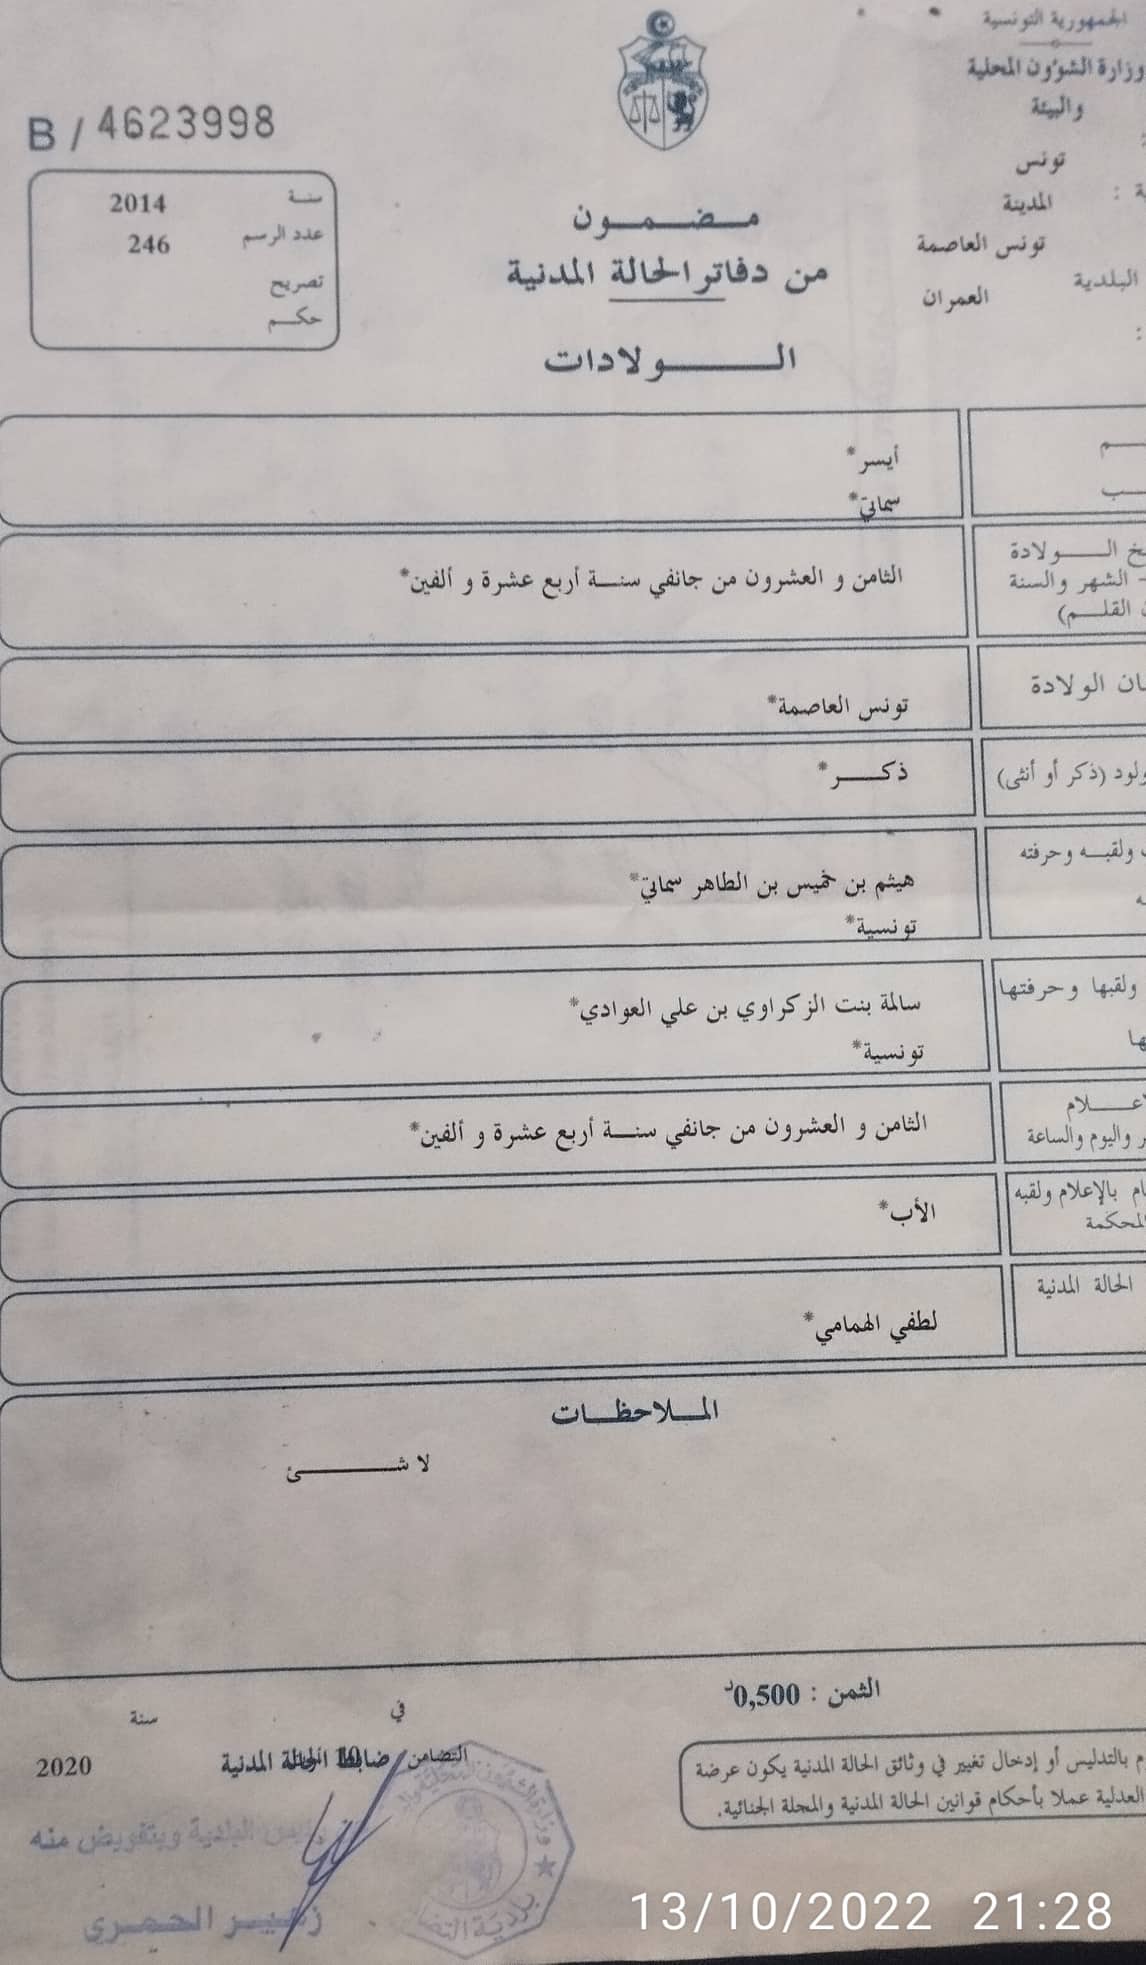 الجمهورية التونسية
وزارة الشؤون المحلية
والبيئة
تونس
المدينة
تونس العاصمة
البلدية
العمران
B / 4623998
سنة 2014
عدد الرسم 246
تصريح
حكم
مضمون
من دفاتر الحالة المدنية
الولادات
أيسر*
سماتي*
الولادة
الشهر والسنة
القلم)
الثامن و العشرون من جانفي سنة أربع عشرة و ألفين*
الولادة
تونس العاصمة*
(ذكر أو أنثى)
ذكر*
ولقبه وحرفته
هيثم بن خميس بن الطاهر سماتي*
تونسية*
ولقبها وحرفتها
سالمة بنت الزكراوي بن علي العوادي*
تونسية*
واليوم والساعة
الثامن و العشرون من جانفي سنة أربع عشرة و ألفين*
بالإعلام ولقبه
المحكمة
الأب*
الحالة المدنية
لطفي الهمامي*
الملاحظات
لا شئ
الثمن : 0,500د
في
سنة
التضامن
ضابط الحالة المدنية
2020
بالتدليس أو إدخال تغيير في وثائق الحالة المدنية يكون عرضة
العدلية عملا بأحكام قوانين الحالة المدنية والمجلة الجنائية.
رئيس البلدية وبتفويض منه
زهير الحمري
13/10/2022 21:28